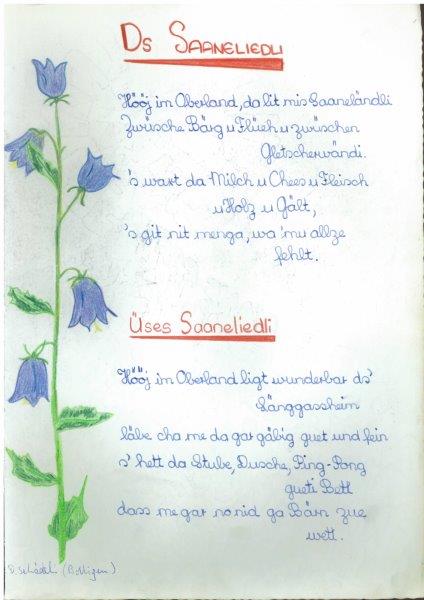 Ds SAANELIEDLI
Hööj im Oberland, da lit mis Saaneländli
Zwüsche Bärg u Flüeh u zwüschen
Gletscherwändi.
's wart da Milch u Chees u Fleisch
u Holz u Gält,
's git nit menga, wa 'mu allze
fehlt.
Üses Saaneliedli
Hööj im Oberland ligt wunderbar ds'
Länggassheim
läbe cha me da gar gäbig guet und fein
s' hett da Stube, Dusche, Ping-Pong
gueti Bett
dass me gar no nid ga Bärn zue
wett.
(Bolligen)